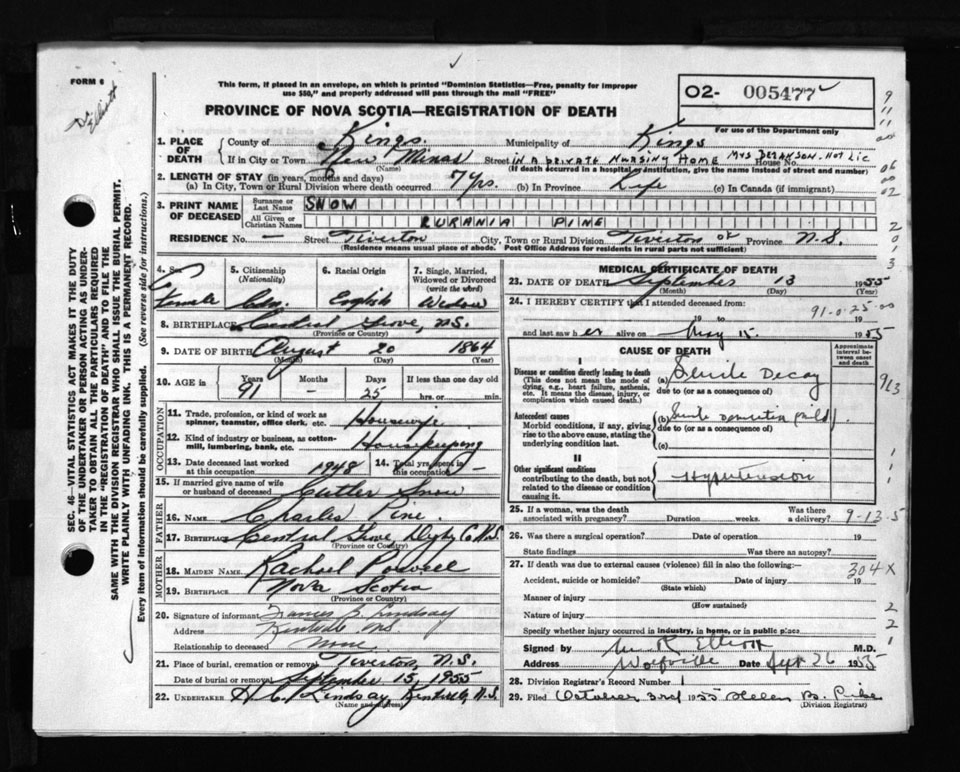 FORM 6
Elliott
This form, if placed in an envelope, on which is printed "Dominion Statistics—Free, penalty for improper
use $50," and properly addressed will pass through the mail "FREE"
PROVINCE OF NOVA SCOTIA—REGISTRATION OF DEATH
02- 005477
For use of the Department only
SEC. 46—VITAL STATISTICS ACT MAKES IT THE DUTY
OF THE UNDERTAKER OR PERSON ACTING AS UNDER-
TAKER TO OBTAIN ALL THE PARTICULARS REQUIRED
IN THE "REGISTRATION OF DEATH" AND TO FILE THE
SAME WITH THE DIVISION REGISTRAR WHO SHALL ISSUE THE BURIAL PERMIT.
WRITE PLAINLY WITH UNFADING INK. THIS IS A PERMANENT RECORD.
Every item of information should be carefully supplied. (See reverse side for instructions.)
1. PLACE OF DEATH
County of Kings. Municipality of Kings
If in City or Town New Minas Street IN A PRIVATE NURSING HOME House No. MRS BEZANSON - NOT LIC
(Name) (If death occurred in a hospital or institution, give the name instead of street and number)
2. LENGTH OF STAY (in years, months and days)
(a) In City, Town or Rural Division where death occurred 7 Yrs. (b) In Province Life (c) In Canada (if immigrant)
3. PRINT NAME OF DECEASED
Surname or Last Name SNOW
All Given or Christian Names LURANIA PINE
RESIDENCE No. — Street Tiverton City, Town or Rural Division Tiverton Province N.S.
(Residence means usual place of abode. Post Office Address for residents in rural parts not sufficient)
4. Sex 5. Citizenship (Nationality) 6. Racial Origin 7. Single, Married, Widowed or Divorced (write the word)
Female Cdn. English Widow
8. BIRTHPLACE Central Grove, N.S.
(Province or Country)
9. DATE OF BIRTH August 20 1864
(Month) (Day) (Year)
10. AGE in Years Months Days If less than one day old
91 – 25 hrs. or min.
OCCUPATION
11. Trade, profession, or kind of work as spinner, teamster, office clerk, etc. Housewife
12. Kind of industry or business, as cotton-mill, lumbering, bank, etc. Housekeeping
13. Date deceased last worked at this occupation 1948 14. Total yrs. spent in this occupation –
15. If married give name of wife or husband of deceased Cutler Snow
FATHER
16. NAME Charles Pine
17. BIRTHPLACE Central Grove, Digby Co N.S.
(Province or Country)
MOTHER
18. MAIDEN NAME Rachael Powell
19. BIRTHPLACE Nova Scotia
(Province or Country)
20. Signature of informant Lindsay
Address Kentville N.S.
Relationship to deceased None
21. Place of burial, cremation or removal Tiverton, N.S.
Date of burial or removal September 15, 1955
22. UNDERTAKER H. C. Lindsay, Kentville, N.S.
(Name and address)
MEDICAL CERTIFICATE OF DEATH
23. DATE OF DEATH September 13 1955
(Month) (Day)
24. I HEREBY CERTIFY that I attended deceased from:
91-0-25-00
19 to 19
and last saw her alive on May 15. 1955
CAUSE OF DEATH
Approximate interval between onset and death
I
Disease or condition directly leading to death
(This does not mean the mode of dying, e.g., heart failure, asthenia, etc. It means the disease, injury, or complication which caused death.)
(a) Senile Decay
due to (or as a consequence of)
Antecedent causes
Morbid conditions, if any, giving rise to the above cause, stating the underlying condition last.
(b) Senile Dementia (mild)
due to (or as a consequence of)
(c)
II
Other significant conditions
contributing to the death, but not related to the disease or condition causing it.
Hypertension
25. If a woman, was the death associated with pregnancy? Duration weeks. Was there a delivery?
9-13-5
26. Was there a surgical operation? Date of operation 19
State findings Was there an autopsy?
27. If death was due to external causes (violence) fill in also the following:
304 X
Accident, suicide or homicide? Date of injury 19
(State which)
Manner of injury
(How sustained)
Nature of injury
Specify whether injury occurred in industry, in home, or in public place
Signed by Elliott M.D.
Address Wolfville Date Sept 26 1955
28. Division Registrar's Record Number 1
29. Filed October 3rd 1955 Helen
(Division Registrar)